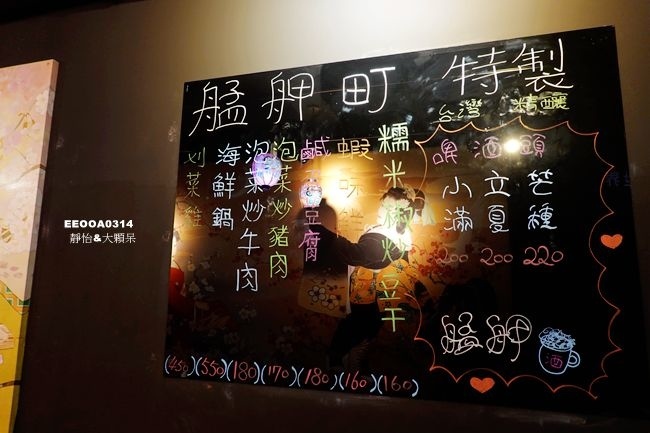 艋舺町 特製
台灣 精釀
啤酒頭
芒種 220
立夏 200
小滿 200
艋舺
酒
糯米椒炒豆干 (160)
蝦 (160)
鹹 豆腐 (180)
泡菜炒豬肉 (170)
泡菜炒牛肉 (180)
海鮮鍋 (550)
刈菜雞 (450)
EEOOA0314
靜怡&大顆呆